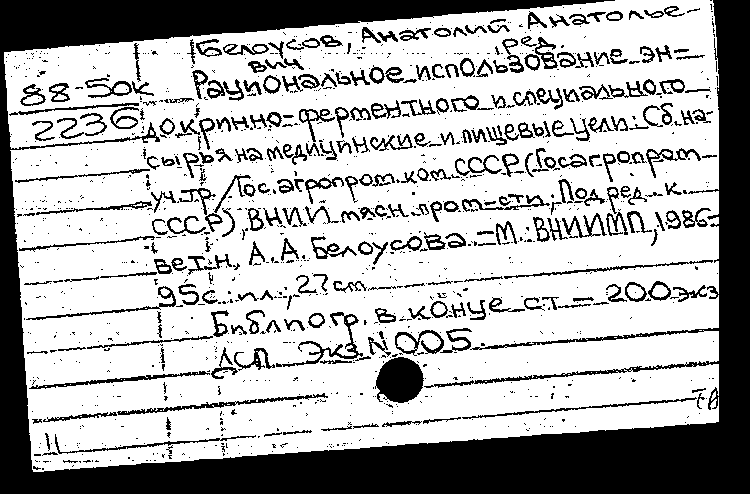 Белоусов, Анатолий Анатолье-
вич, ред.
88-50к Рациональное использование эн-
2236 докринно-ферментного и специального
сырья на медицинские и пищевые цели: Сб. на-
уч. тр. / Гос. агропром. ком. СССР (Госагропром
СССР), ВНИИ мясн. пром-сти; Под ред. к.
вет. н. А. А. Белоусова. - М.: ВНИИМП, 1986-
95с.: ил.; 27 см
Библиогр. в конце ст - 200 экз
ДСП Экз N 005.
11